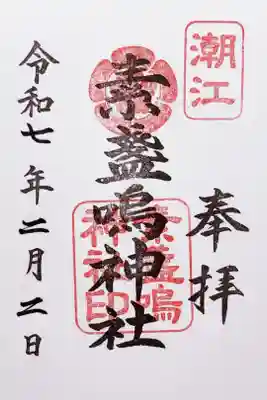 潮江
奉拝
素盞嗚神社
素盞嗚神社印
令和七年二月二日